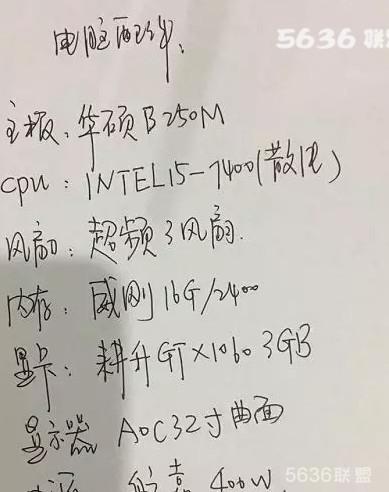 5636联
电脑配件:
主板:华硕B250M
cpu:INTEL I5-7400(散片)
风扇:超频3风扇.
内存:威刚16G/2400
显卡:耕升GTX1060 3GB
显示器 AOC32寸曲面
电源 航嘉400W
5636联盟